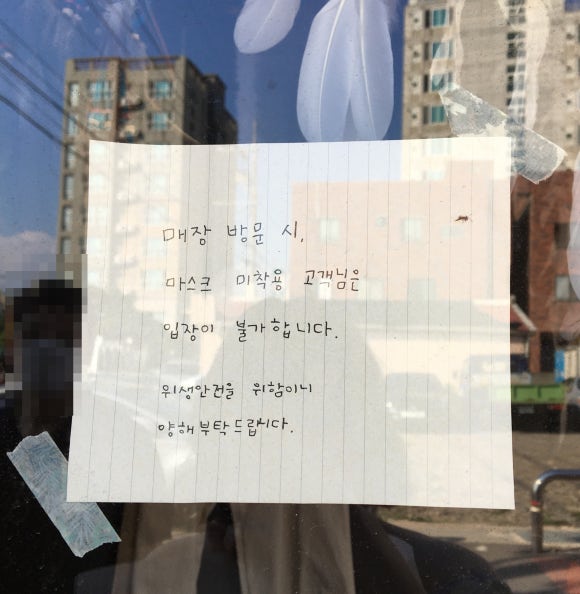 매장 방문 시,
마스크 미착용 고객님은
입장이 불가합니다.
위생안전을 위함이니
양해부탁드립니다.